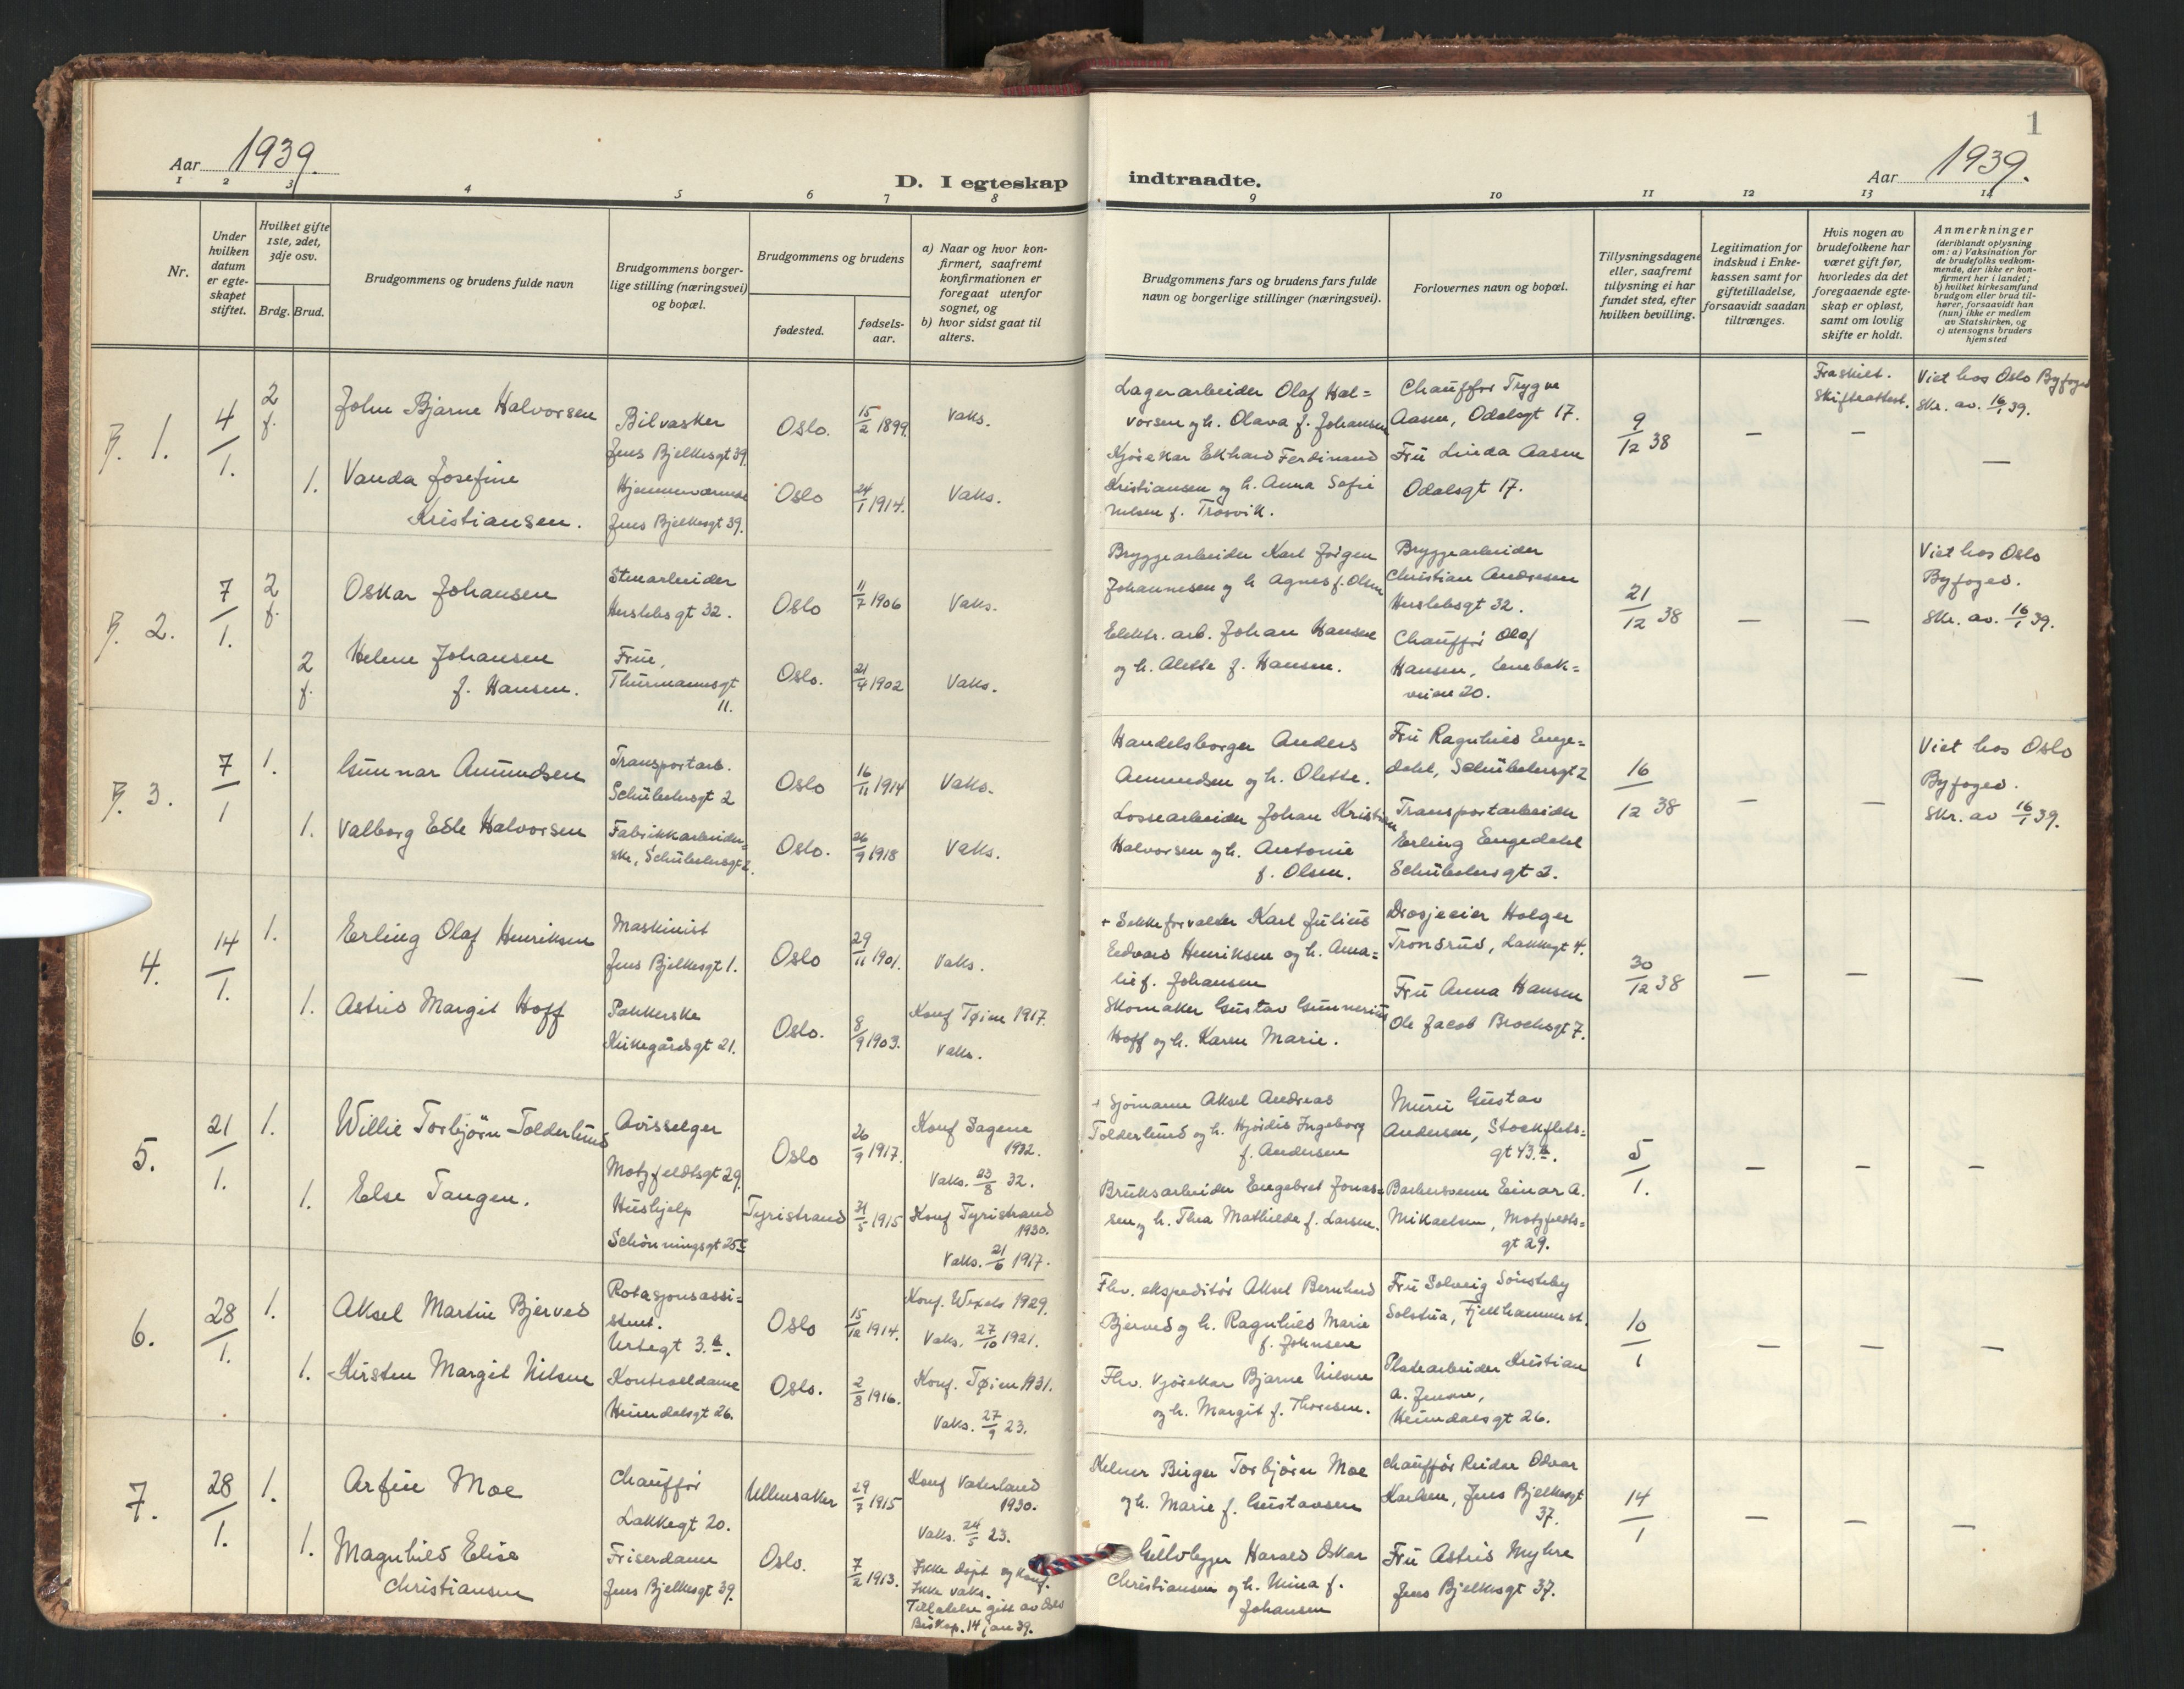 1
Aar 1939.
D. I egteskap indtraadte.
Aar 1939.
1 2 3 4 5 6 7 8 9 10 11 12 13 14
Nr.
Under hvilken datum er egte-skapet stiftet.
Hvilket gifte 1ste, 2det, 3dje osv.
Brdg. Brud.
Brudgommens og brudens fulde navn
Brudgommens borger-lige stilling (næringsvei) og bopæl.
Brudgommens og brudens
fødested.
fødsels-aar.
a) Naar og hvor kon-firmert, saafremt konfirmationen er foregaat utenfor sognet, og
b) hvor sidst gaat til alters.
Brudgommens fars og brudens fars fulde navn og borgerlige stillinger (næringsvei).
Forlovernes navn og bopæl.
Tillysningsdagene eller, saafremt tillysning ei har fundet sted, efter hvilken bevilling.
Legitimation for indskud i Enke-kassen samt for giftetilladelse, forsaavidt saadan tiltrænges.
Hvis nogen av brudefolkene har været gift før, hvorledes da det foregaaende egte-skap er opløst, samt om lovlig skifte er holdt.
Anmerkninger
(deriblandt oplysning om: a) Vaksination for de brudefolks vedkom-mende, der ikke er kon-firmert her i landet; b) hvilket kirkesamfund brudgom eller brud til-hører, forsaavidt han (hun) ikke er medlem av Statskirken, og c) utensogns bruders hjemsted
1.
4/1.
2 f.
John Bjarne Halvorsen
Bilvasker
Jens Bjelkesgt 39.
Oslo.
15/2 1899.
Vaks.
1.
Vanda Josefine
Kristiansen.
Jens Bjelkesgt 39.
Oslo
24/1 1914.
Vaks.
Lagerarbeider Olaf Hal=
vorsen og h. Olava f. Johansen
Kjørekar Ekhard Ferdinand
Kristiansen og h. Anna Sofie
Nilsen f. Trosvik.
Chauffør Trygve
Aasen, Odalsgt 17.
Fru Linda Aasen
Odalsgt 17.
9/12 38
—
—
Fraskilt.
Skifteattest.
Viet hos Oslo Byfoged
Skr. av. 16/1 39.
—
2.
7/1.
2 f.
Oskar Johansen
Stenarbeider
Herslebsgt 32.
Oslo
11/7 1906
Vaks.
2 f.
Helene Johansen
f. Hansen.
Frue,
Thurmannsgt
11.
Oslo.
21/4 1902
Vaks.
Bryggearbeider Karl Jørgen
Johannesen og h Agnes f. Olsen
Elektr. arb. Johan Hansen
og h. Alette f. Hansen.
Bryggearbeider
Christian Andresen
Herslebsgt 32.
Chauffør Olaf
Hansen, Enebak=
veien 20.
21/12 38
—
—
Viet hos Oslo
Byfoged.
Skr. av. 16/1 39.
3.
7/1
1.
Gunnar Amundsen
Transportarb.
Schübelersgt 2
Oslo
16/11 1914
Vaks.
1.
Valborg Edle Halvorsen
Fabrikkarbeider=
ske, Schübelersgt 2.
Oslo.
26/9 1918
Vaks.
Handelsborger Anders
Amundsen og h. Olette.
Lossearbeider Johan Kristian
Halvorsen og h. Antonie
f. Olsen.
Fru Ragnhild Enge=
dahl, Schübelersgt 2
Transportarbeider
Erling Engedahl
Schübelersgt 2.
16/12 38
—
—
Viet hos Oslo
Byfoged.
Skr. av 16/1 39.
4.
14/1.
1.
Erling Olaf Henriksen
Maskinist
Jens Bjelkesgt 1.
Oslo
29/11 1901.
Vaks.
1.
Astrid Margit Hoff
Pakkerske
Kirkegårdsgt 21.
Oslo.
8/9 1903.
Konf Tøien 1917.
Vaks.
+ Sekkeforvalter Karl Julius
Edvard Henriksen og h. Ama=
lie f. Johansen
Skomaker Gustav Gunnerius
Hoff og h. Karen Marie.
Drosjeeier Holger
Tronsrud, Lakkegt 4.
Fru Anna Hansen
Ole Jacob Brochsgt 7.
30/12 38
—
—
—
5.
21/1.
1.
Willie Torbjørn Tolderlund
Avisselger
Motzfeldtsgt 29.
Oslo
26/9 1917.
Konf Sagene
1932.
Vaks. 23/8 32.
1.
Else Tangen.
Hushjelp
Schønningsgt 25
Tyristrand
31/5 1915
Konf Tyristrand
1930.
Vaks. 21/6 1917.
+ Sjømann Aksel Andreas
Tolderlund og h. Hjørdis Ingeborg
f. Andersen
Bruksarbeider Engebret Jonas=
sen og h. Thea Mathilde f. Larsen.
Murer Gustav
Andersen, Stockflets=
gt 43.
Barbersvenn Einar A.
Mikaelsen, Motzfeldts=
gt 29.
5/1.
—
—
—
6.
28/1.
1.
Aksel Martin Bjerved
Rotasjonsassi=
stent.
Urtegt 3.
Oslo
15/12 1914.
Konf. Wexels 1929.
Vaks. 27/10 1921.
1.
Kirsten Margit Nilsen
Kontrolldame
Heimdalsgt 26.
Oslo.
2/8 1916.
Konf. Tøien 1931.
Vaks. 27/9 23.
Fhv. ekspeditør Aksel Bernhard
Bjerved og h. Ragnhild Marie
f. Johnsen
Fhv. kjørekar Bjarne Nilsen
og h. Margit f. Thoresen.
Fru Solveig Sønsteby
Solstua, Fjellhammer st.
Platearbeider Kristian
A. Jensen,
Heimdalsgt 26.
10/1
—
—
—
7.
28/1.
1.
Arfin Moe
Chauffør
Lakkegt 20.
Ullensaker
29/7 1915
Konf Vaterland
1930.
Vaks. 24/5 23.
1.
Magnhild Elise
Christiansen
Friserdame
Jens Bjelkesgt 39.
Oslo.
7/2 1913.
Ikke døpt og konf.
Ikke vaks.
Tillatelse gitt av Oslo
Biskop. 14 jan 39.
Kelner Birger Torbjørn Moe
og h. Marie f. Gustavsen
Gullvlegger Harald Oskar
Christiansen og h. Nina f.
Johansen
Chauffør Reidar Odvar
Karlsen, Jens Bjelkesgt
37.
Fru Astrid Myhre
Jens Bjelkesgt 37.
14/1
—
—
—